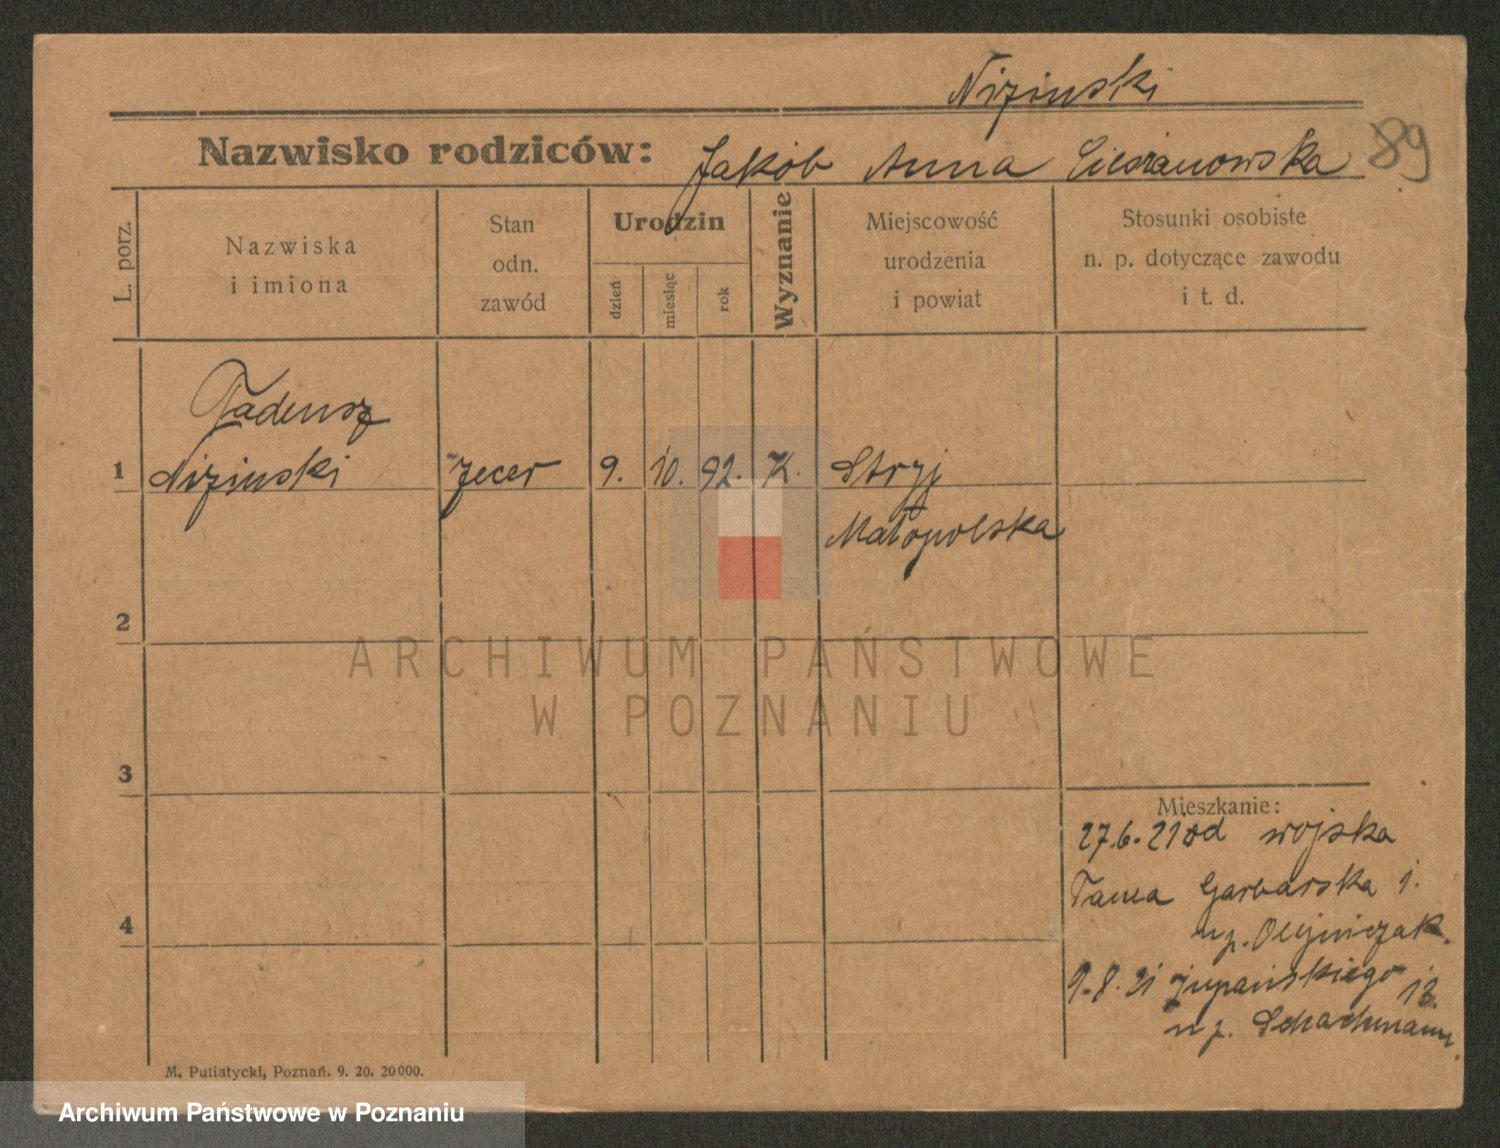 Niziński
Nazwisko rodziców: Jakób Anna Cieszanowska 89
L. porz.
Nazwiska
i imiona
Stan
odn.
zawód
Urodzin
dzień
miesiąc
rok
Wyznanie
Miejscowość
urodzenia
i powiat
Stosunki osobiste
n. p. dotyczące zawodu
i t. d.
Tadeusz
1 Niziński zecer 9. 10. 92. K. Stryj
Małopolska
2
3
4
Mieszkanie:
27.6.21 od wojska
Tama Garbarska 1.
u p. Olejniczak.
9.8.21 Żupańskiego 13.
u p. Schachmann.
M. Putiatycki, Poznań. 9. 20. 20000.
ARCHIWUM PAŃSTWOWE
W POZNANIU
Archiwum Państwowe w Poznaniu